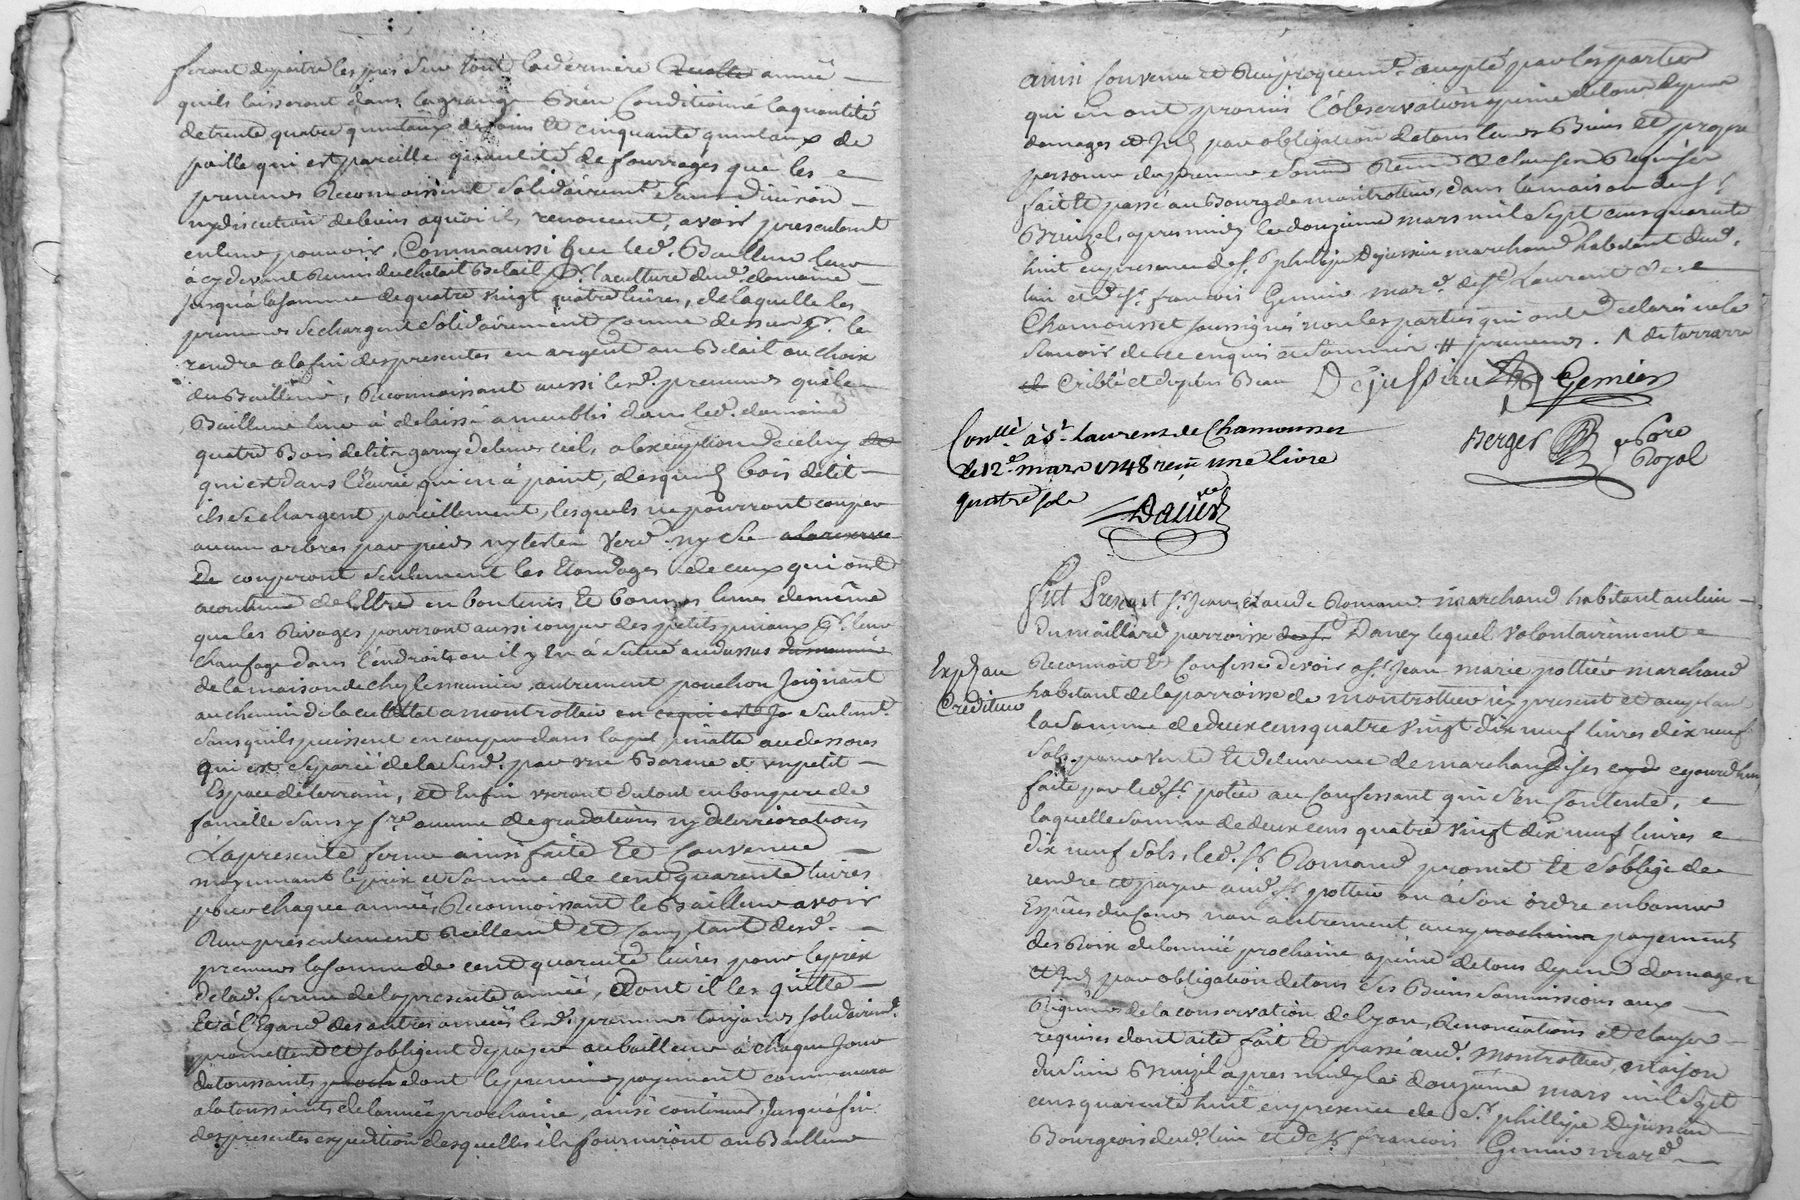 feront depaitre les prés sur tout la derniere année
quils laisseront dans la grange bien conditionné la quantité
de trente quatre quintaux de foins Et cinquante quintaux de
paille qui est pareille quantité de fourrages que les
preneurs Reconnoissent solidairemt. sans division
ny discution de biens aquoi ils renoncent, avoir presentement
enleur pouvoir, Comme aussi que led. Bailleur leur
à cy devant Remis du bétail pr. la culture dud. domaine
jusqu'à la somme de quatre vingt quatre livres, de laquelle les
preneurs se chargent solidairement comme dessus pr. la
rendre a la fin des presentes en argent ou Bétail au choix
du Bailleur, Reconnoissant aussi lesd. preneurs que le
Bailleur leur à delaissé ameublis dans led. domaine
quatre Bois de lit garny de leurs ciel, a lexception de celuy
qui est dans l'écurie qui en à point, desquels bois de lit
ils se chargent pareillement, lesquels ne pourront couper
aucun arbres par pieds ny teste Verd ny sec
couperont seulement les Elondages de ceux qui ont
acoutumé de l'Etre en bon tems Et bonnes lunes de meme
que les Rivages pourront aussi couper des petits pinaux pr. leur
chaufage dans l'endroits ou il y En à situé au dessus
de la maison de chez le meunier autrement pouchon Joignant
au chemin de la au Montrottier seulemt.
sans quils puissent en couper dans la pinatte au dessous
qui est separée de la susd. par une Barme et un petit
Espace de terrain, et Enfin useront du tout en bon pere de
famille sans y fre. aucune degradations ny deteriorations
La presente ferme ainsi faite Et Convenue
moyennant le prix et somme de cent quarente livres
pour chaque année, Reconnoissant le Bailleur avoir
Reçu presentement Réellemt. et comptant desd.
preneurs la somme de cent quarente livres pour le prix
de lad. ferme de la presente année, dont il les quitte
Et à l'Egard des autres années lesd. preneurs toujours solidairemt.
promettent et sobligent de payer au bailleur à chaque Jour
de toussaints dont le premier payement commencera
a la toussaints de l'année prochaine, ainsi continuer Jusqu'à fin
des presentes expedition desquelles ils fourniront au Bailleur
ainsi Convenu et Reciproquemt. accepté par les parties
qui en ont promis l'observation a peine de tous depens
domages et par obligation de tous leurs Biens et propre
personne des preneurs soumis Renon. et clauses Requises
fait Et passé au Bourg de montrottier, dans la maison de sr.
Bruyzel, apres midy le douzieme mars mil sept cens quarente
huit en presence de sr. philippe Dejussieu marchand habitant dud.
lieu et de sr. francois Gemier mard. de st. Laurent de
Chamousset soussignés non les parties qui ont declaré ne le
scavoir de ce enquis et sommés # preneurs. Λ de tarrare
et Criblé et du plus Beau Dejussieu Gemier
Contlé. à St. Laurens de Chamousset
le 12e. mars 1748 reçu une livre
quatre sols
Berger Nore
Royal
Fut Present sr. Jean Claude Romand marchand habitant au lieu
du maillard parroisse Dancy lequel volontairement
Exp. au
Créditeur
Reconnoit Et Confesse devoir a sr. Jean marie pottier marchand
habitant de la parroisse de montrottier icy present et acceptant
la somme de deux cens quatre vingt dix neuf livres dix neuf
sols pour vente Et delivrance de marchandises cejourdhuy
faite par led. sr. potier au Confessant qui s'En Contente,
laquelle somme de deux cens quatre vingt dix neuf livres
dix neuf sols, led. sr. Romand promet Et s'oblige de
rendre et payer aud. sr. pottier ou à son ordre en bonnes
Espèces du Cours non autrement aux prochains payements
des Roix de l'année prochaine a peine de tous depens domages
et par obligation de tous ses Biens soumissions aux
Rigueurs de la conservation de Lyon, Renonciations et clauses
requises dont acte fait Et passé aud. Montrottier, maison
du sieur Bruyzel apres midy le douzieme mars mil sept
cens quarente huit en presence de sr. phillipe Dejussieu
Bourgeois dud. lieu et de sr. francois Gemier mard.